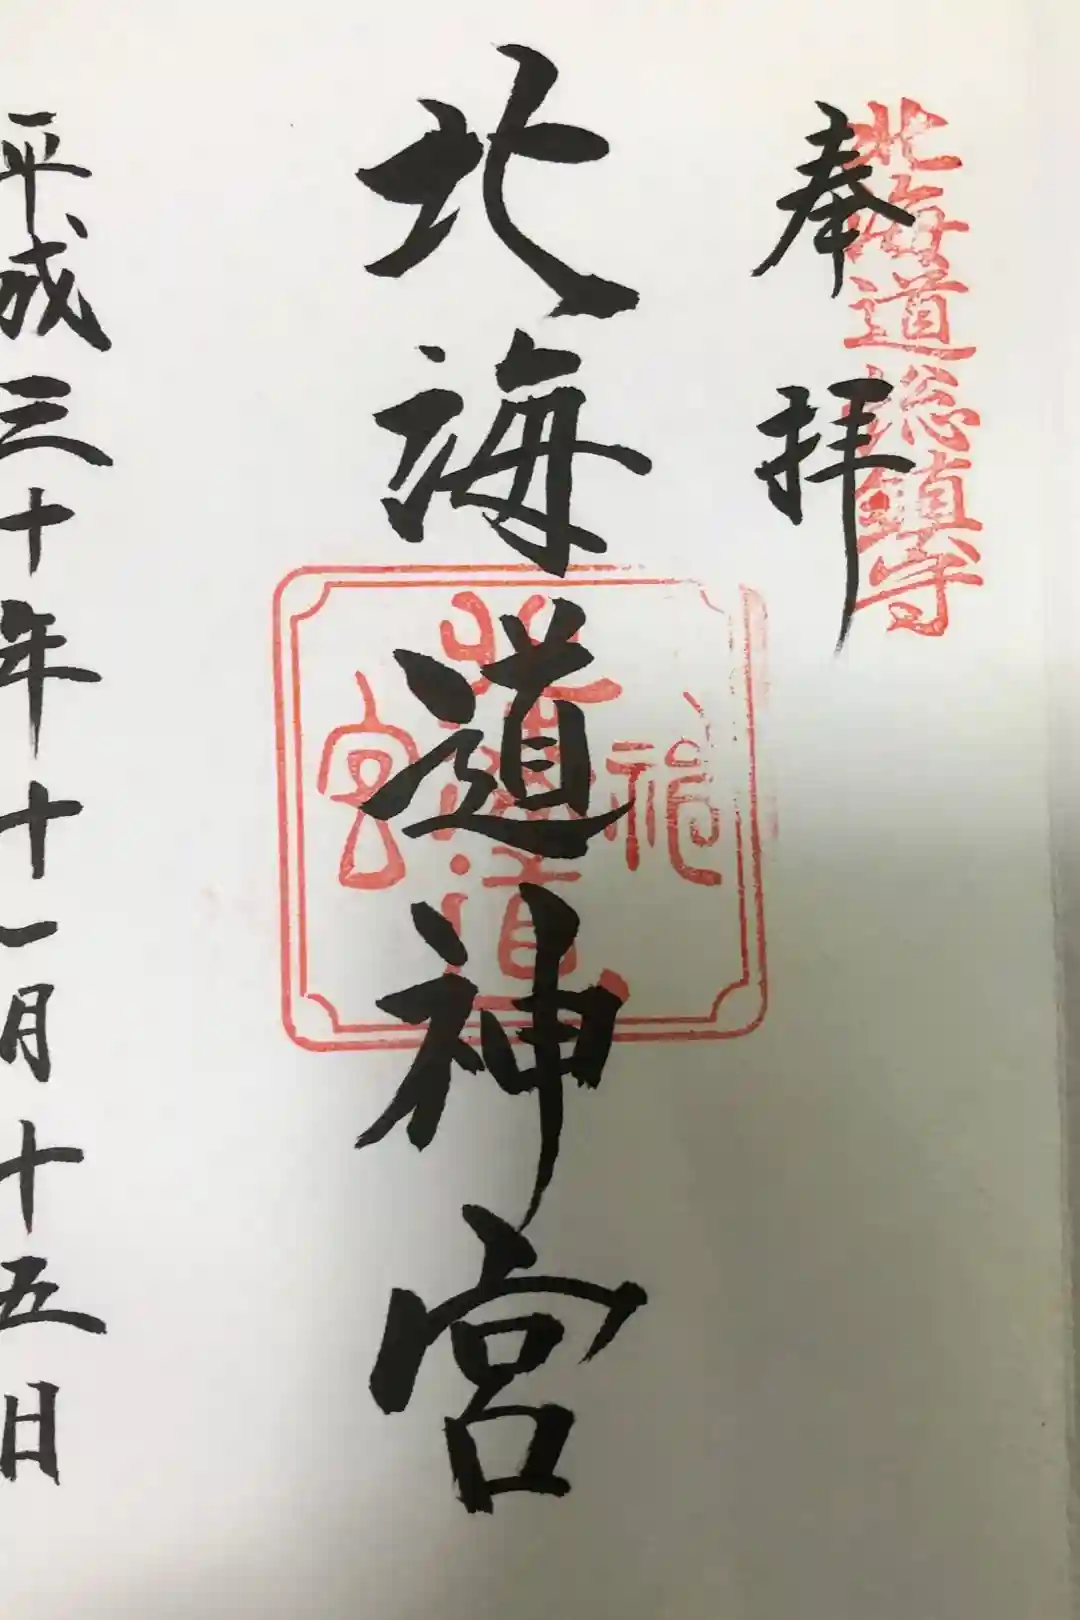 北海道総鎮守
奉拝
北海道神宮
北海道神宮
平成三十年十一月十五日